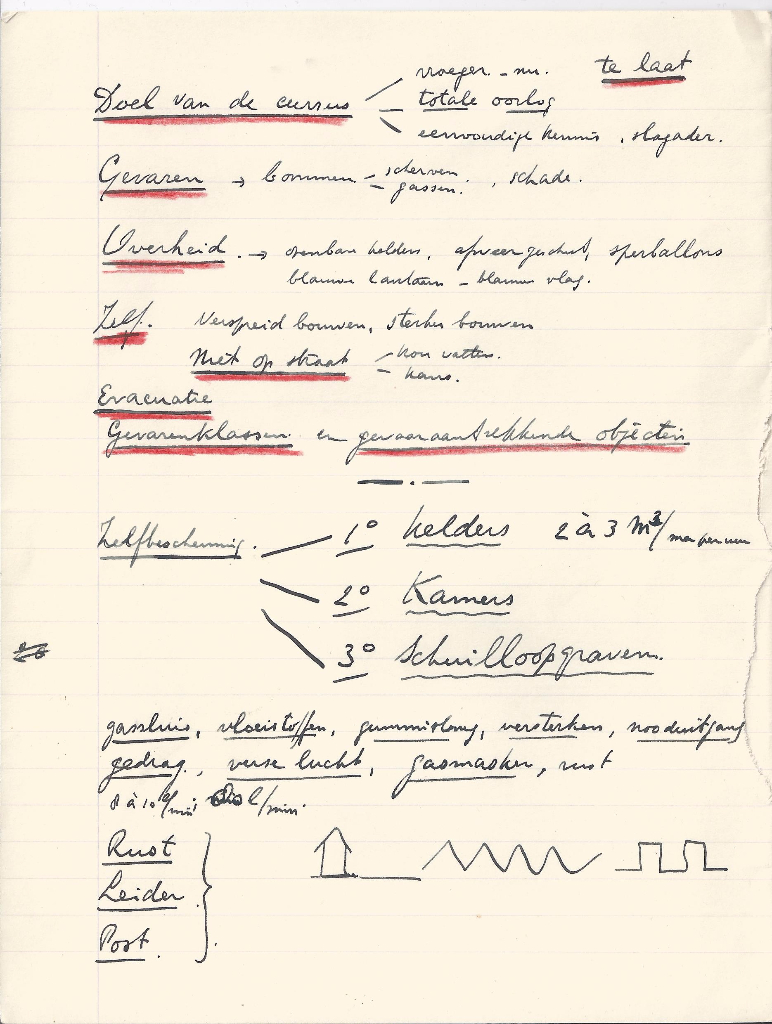 vroeger - nu. te laat
Doel van de cursus totale oorlog
eenvoudige kennis, slagader.
Gevaren → bommen - scherven
- gassen. , schade.
Overheid. → openbare kelders, afweergeschut, sperballons
blauwe lantaarn - blauwe vlag.
Zelf. Verspreid bouwen, sterker bouwen
Niet op straat
Evacuatie
Gevarenklassen en gevaaraantrekkende objecten
Zelfbescherming. 1° kelders 2 à 3 m³/
2° Kamers
3° Schuilloopgraven.
gassluis, vloeistoffen, gummislang, versterken, nooduitgang
gedrag, verse lucht, gasmasker, rust
8 à 10 l/min, l/min.
Rust
Leider
Post.